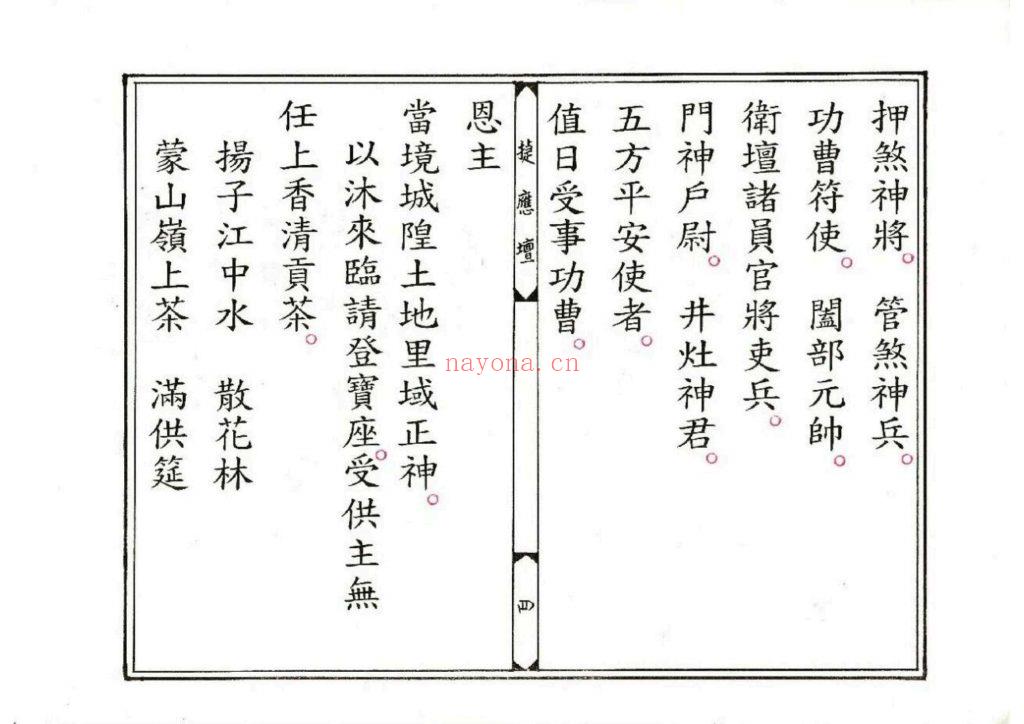 押煞神將。　管煞神兵。
功曹符使。　闔部元帥。
衛壇諸員官將吏兵。
門神戶尉。　井灶神君。
五方平安使者。
值日受事功曹。
捷應壇
四
恩主
當境城隍土地里域正神。
以沐來臨請登寶座。受供主無
任上香清貢茶。
揚子江中水　散花林
蒙山嶺上茶　滿供筵
nayona.cn